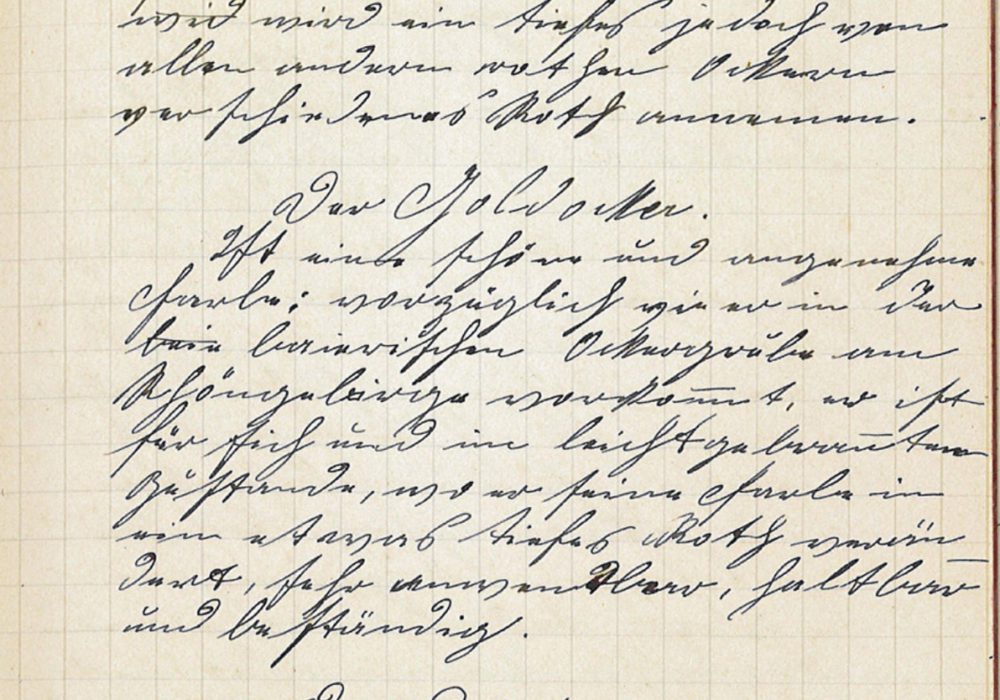 wid wird ein tiefes jedoch von
allen andern rothen Ockern
verschiedenes Roth annemen.
Der Goldocker.
Ist eine schöne und angenehme
Farbe; vorzüglich wie er in der
bein baierischen Ockergrube am
Rhöngebirge vorkom̄t, er ist
für sich und im leichtgebran̄ten
Zustande, wo er seine Farbe in
ein etwas tiefes Roth verän
dert, sehr anwendbar, haltbar
und beständig.